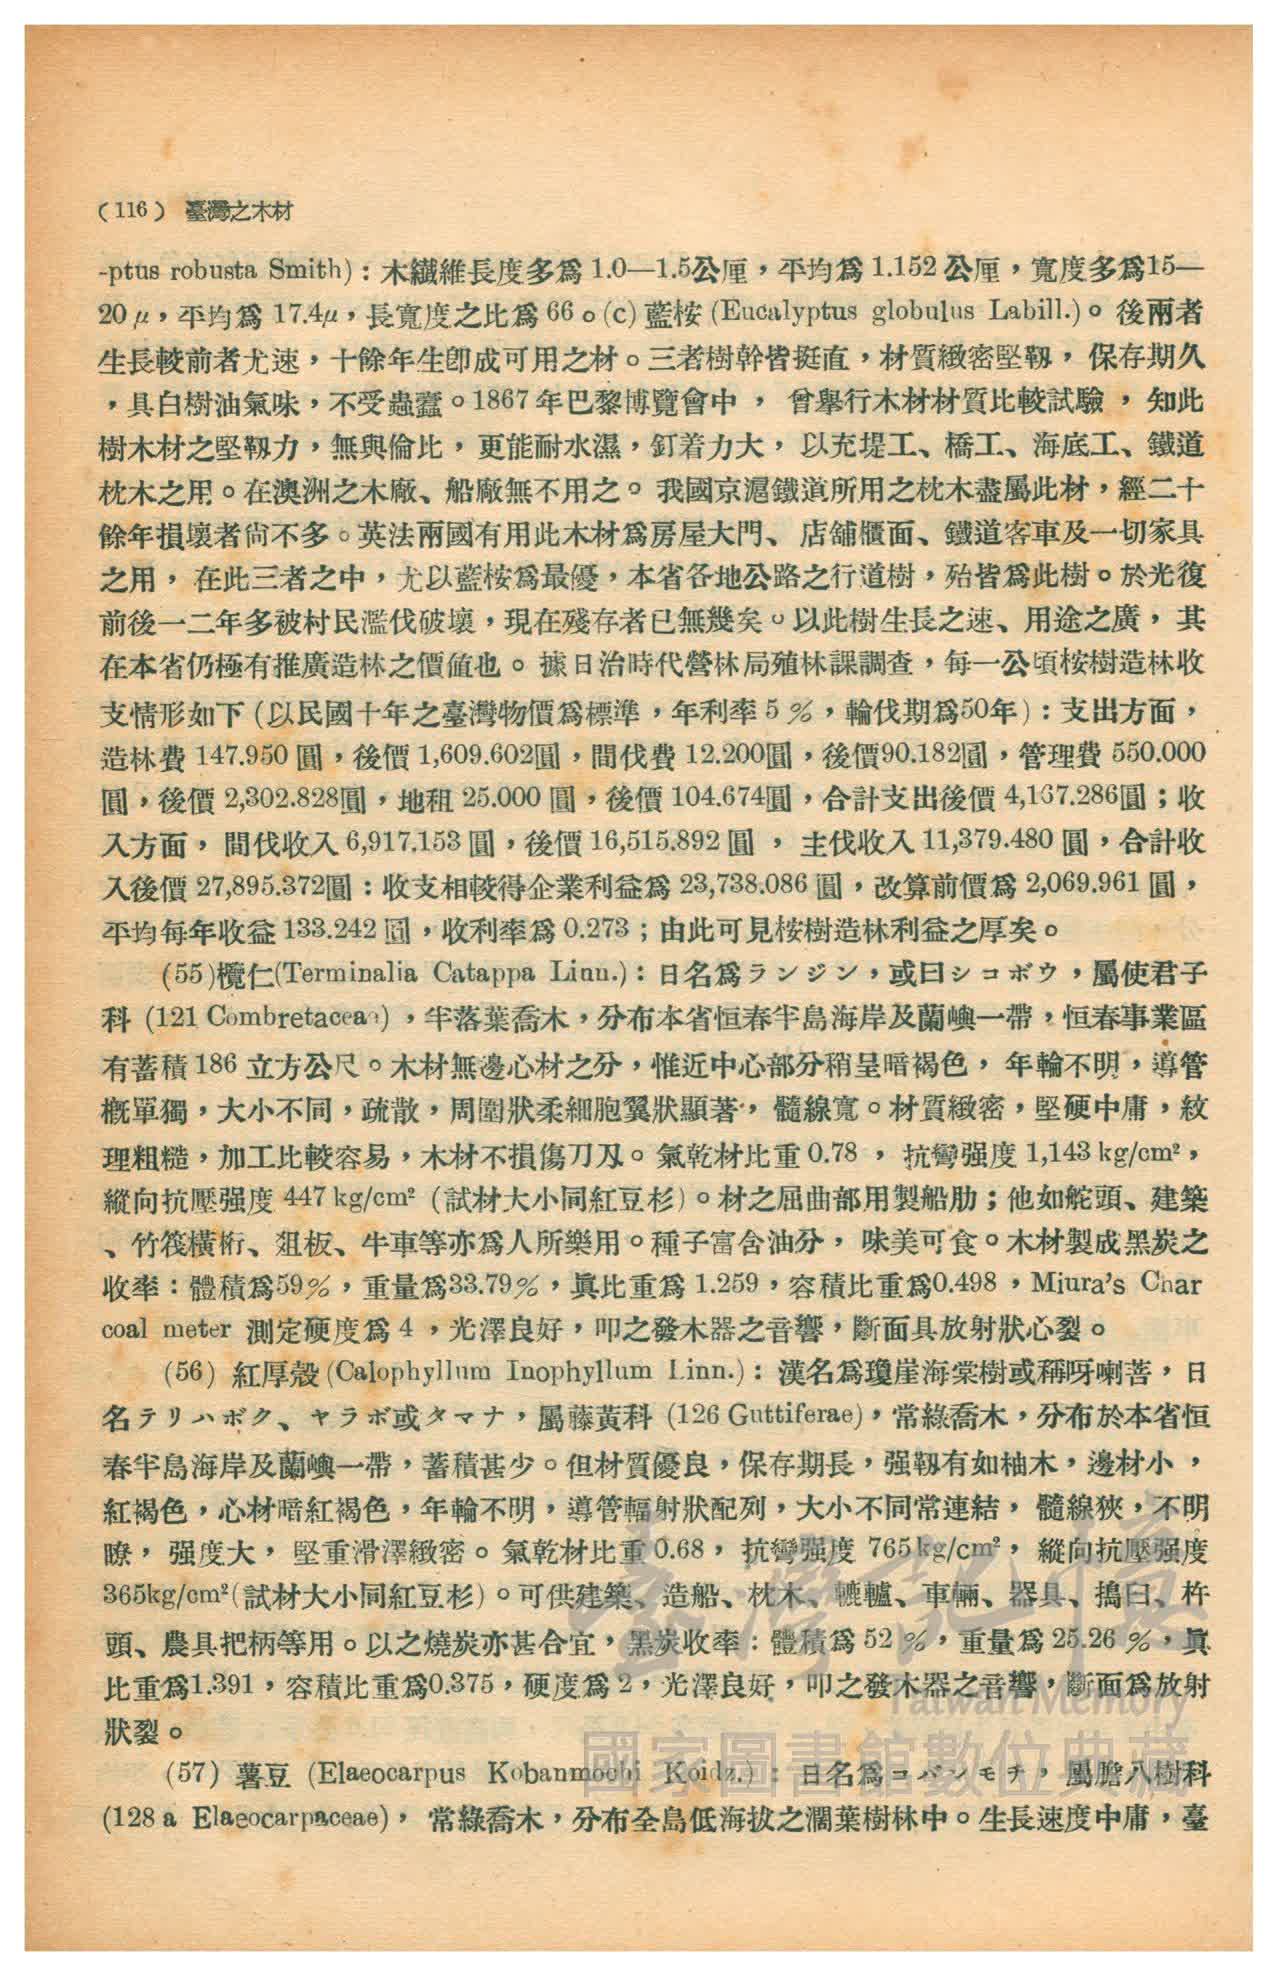 (116) 臺灣之木材
-ptus robusta Smith)：木纖維長度多爲 1.0—1.5公厘，平均爲 1.152 公厘，寬度多爲15—
20μ，平均爲 17.4μ，長寬度之比爲 66。(c) 藍桉 (Eucalyptus globulus Labill.)。後兩者
生長較前者尤速，十餘年生卽成可用之材。三者樹幹皆挺直，材質緻密堅韌，保存期久
，具白樹油氣味，不受蟲蠹。1867 年巴黎博覽會中，曾擧行木材材質比較試驗，知此
樹木材之堅韌力，無與倫比，更能耐水濕，釘着力大，以充堤工、橋工、海底工、鐵道
枕木之用。在澳洲之木廠、船廠無不用之。我國京滬鐵道所用之枕木盡屬此材，經二十
餘年損壞者尙不多。英法兩國有用此木材爲房屋大門、店舖櫃面、鐵道客車及一切家具
之用，在此三者之中，尤以藍桉爲最優，本省各地公路之行道樹，殆皆爲此樹。於光復
前後一二年多被村民濫伐破壞，現在殘存者已無幾矣。以此樹生長之速、用途之廣，其
在本省仍極有推廣造林之價値也。據日治時代營林局殖林課調查，每一公頃桉樹造林收
支情形如下 (以民國十年之臺灣物價爲標準，年利率 5 %，輪伐期爲50年)：支出方面，
造林費 147.950 圓，後價 1,609.602圓，間伐費 12.200圓，後價90.182圓，管理費 550.000
圓，後價 2,302.828圓，地租 25.000 圓，後價 104.674圓，合計支出後價 4,157.286圓；收
入方面，間伐收入 6,917.153 圓，後價 16,515.892 圓，主伐收入 11,379.480 圓，合計收
入後價 27,895.372圓：收支相較得企業利益爲 23,738.086 圓，改算前價爲 2,069.961 圓，
平均每年收益 133.242 圓，收利率爲 0.273；由此可見桉樹造林利益之厚矣。
(55)欖仁(Terminalia Catappa Linn.)：日名爲ランジン，或曰シコボウ，屬使君子
科 (121 Combretaceae)，半落葉喬木，分布本省恒春半島海岸及蘭嶼一帶，恒春事業區
有蓄積 186 立方公尺。木材無邊心材之分，惟近中心部分稍呈暗褐色，年輪不明，導管
槪單獨，大小不同，疏散，周圍狀柔細胞翼狀顯著，髓線寬。材質緻密，堅硬中庸，紋
理粗糙，加工比較容易，木材不損傷刀刄。氣乾材比重 0.78，抗彎强度 1,143 kg/cm²，
縱向抗壓强度 447 kg/cm² (試材大小同紅豆杉)。材之屈曲部用製船肋；他如舵頭、建築
、竹筏橫桁、爼板、牛車等亦爲人所樂用。種子富含油分，味美可食。木材製成黑炭之
收率：體積爲59%，重量爲33.79%，眞比重爲 1.259，容積比重爲0.498，Miura's Char
coal meter 測定硬度爲 4，光澤良好，叩之發木器之音響，斷面具放射狀心裂。
(56) 紅厚殼 (Calophyllum Inophyllum Linn.)：漢名爲瓊崖海棠樹或稱呀喇菩，日
名テリハボク、ヤラボ或タマナ，屬藤黃科 (126 Guttiferae)，常綠喬木，分布於本省恒
春半島海岸及蘭嶼一帶，蓄積甚少。但材質優良，保存期長，强韌有如柚木，邊材小，
紅褐色，心材暗紅褐色，年輪不明，導管輻射狀配列，大小不同常連結，髓線狹，不明
瞭，强度大，堅重滑澤緻密。氣乾材比重 0.68，抗彎强度 765 kg/cm²，縱向抗壓强度
365kg/cm²(試材大小同紅豆杉)。可供建築、造船、枕木、轆轤、車輛、器具、搗臼、杵
頭、農具把柄等用。以之燒炭亦甚合宜，黑炭收率：體積爲 52 %，重量爲 25.26 %，眞
比重爲1.391，容積比重爲0.375，硬度爲 2，光澤良好，叩之發木器之音響，斷面爲放射
狀裂。
(57) 薯豆 (Elaeocarpus Kobanmochi Koidz.)：日名爲コバンモチ，屬膽八樹科
(128 a Elaeocarpaceae)，常綠喬木，分布全島低海拔之濶葉樹林中。生長速度中庸，臺
臺灣記憶
Taiwan Memory
國家圖書館數位典藏